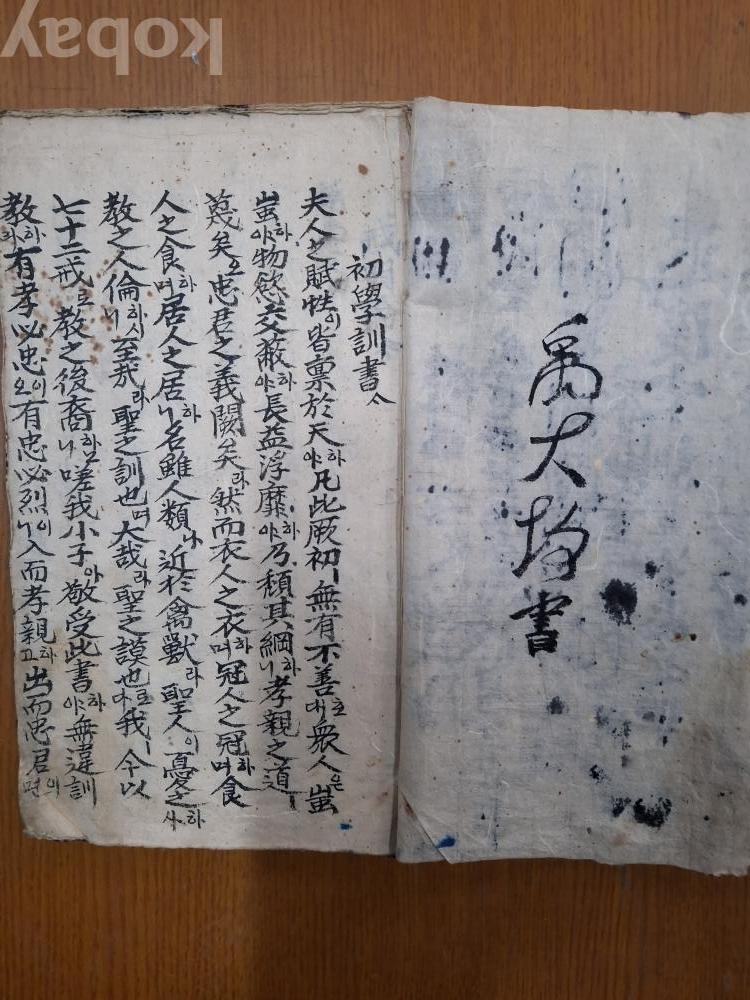 Kobay
禹大書
初學訓書
夫人之賦性이皆稟於天하야凡此厥初ㅣ無有不善호대衆人은蚩
蚩하야物慾交蔽하야長益浮靡하야乃頹其綱하니孝親之道ㅣ
蔑矣오忠君之義闕矣라然而衣人之衣하며冠人之冠하며食
人之食하며居人之居하니名雖人類나近於禽獸라聖人이憂之하사
敎之人倫하시니至哉라聖之訓也며大哉라聖之謨也로다我ㅣ今以
七十二戒로敎之後裔하니嗟我小子아敬受此書하야無違訓
敎하라有孝必忠이오有忠必烈이니入而孝親하고出而忠君이면